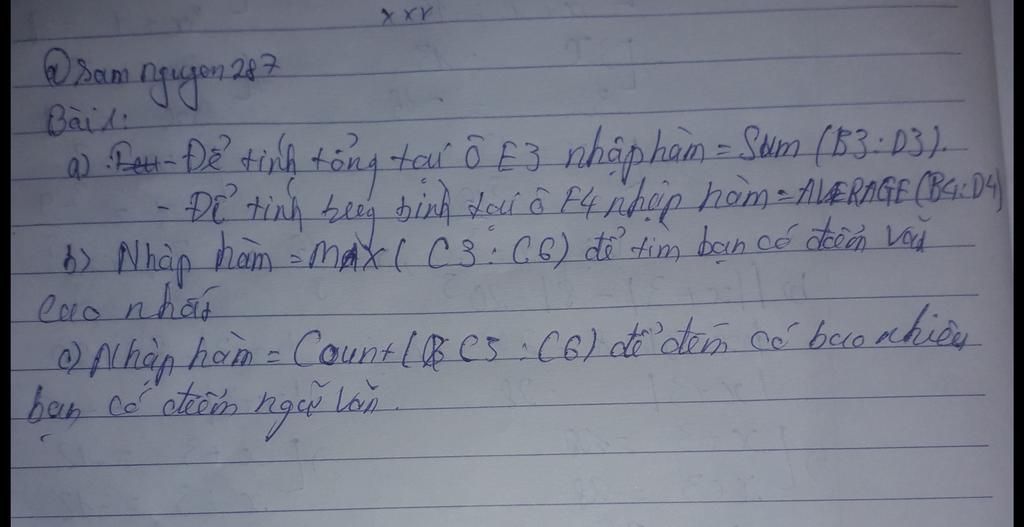 x x x
@Sam nguyen287
Bài 1:
a) - Để tính tổng tại ô E3 nhập hàm = Sum (B3 : D3).
- Để tính bình tại ô F4 nhập hàm = AVERAGE(B4:D4)
b) Nhập hàm = MAX ( C3 : C6 ) để tìm bạn có điểm văn
cao nhất
c) Nhập hàm = Count ( C3 : C6 ) để đếm có bao nhiêu
bạn có điểm ngữ văn.